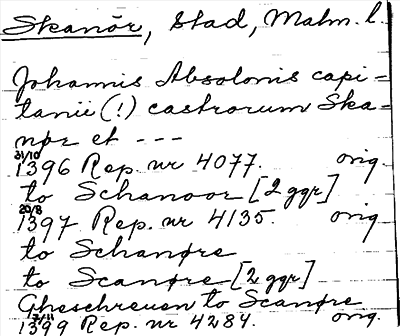 Skanör, stad, Malm. l.
Johannis Absolonis capi=
tanii (!) castrorum Ska=
nør et ---
31/10
1396 Rep. nr 4077. orig.
to Schanoor [2 ggr]
20/8
1397 Rep. nr 4135. orig
to Schanøre
to Scanøre [2 ggr]
Gheschreuen to Scanøre
1399 Rep. nr 4284. orig.